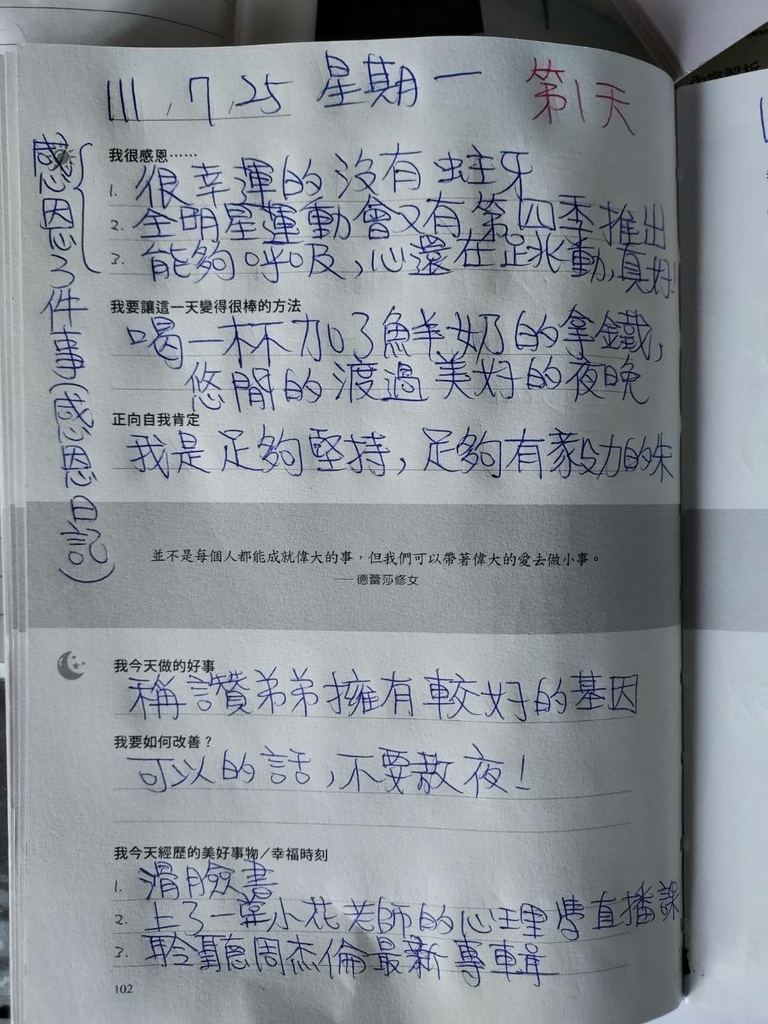 111.7.25 星期一 第1天
感恩3件事(感恩日記)
我很感恩……
1. 很幸運的沒有蛀牙
2. 全明星運動會又有第四季推出
3. 能夠呼吸,心還在跳動,真好!
我要讓這一天變得很棒的方法
喝一杯加了鮮羊奶的拿鐵,
悠閒的渡過美好的夜晚
正向自我肯定
我是足夠堅持,足夠有毅力的朱
並不是每個人都能成就偉大的事,但我們可以帶著偉大的愛去做小事。
——德蕾莎修女
我今天做的好事
稱讚弟弟擁有較好的基因
我要如何改善?
可以的話,不要熬夜!
我今天經歷的美好事物/幸福時刻
1. 滑臉書
2. 上了一堂小花老師的心理學直播課
3. 聆聽周杰倫最新專輯
102